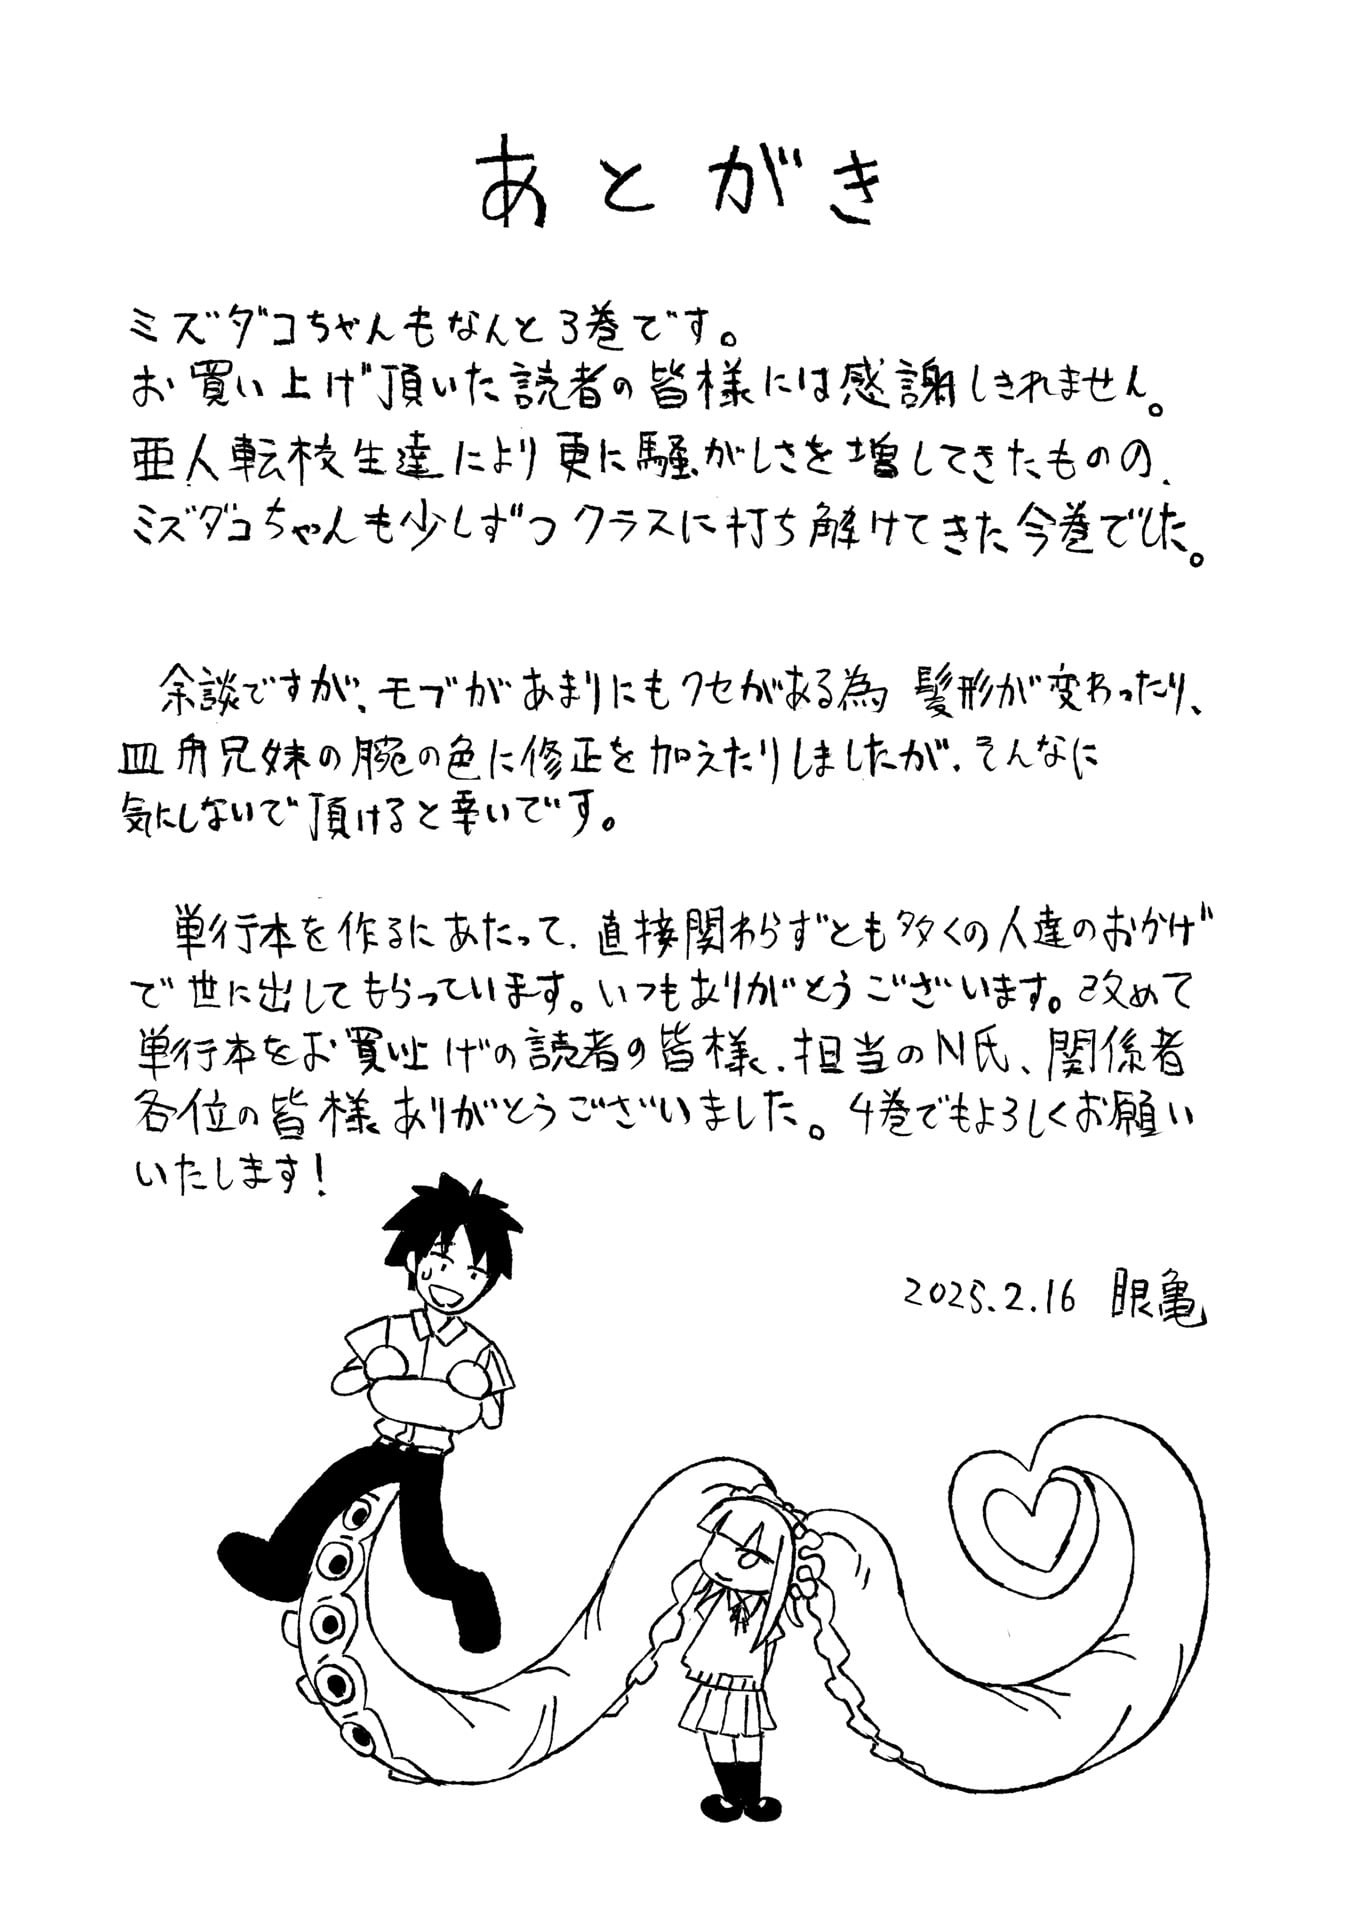 あとがき
ミズダコちゃんもなんと3巻です。
お買い上げ頂いた読者の皆様には感謝しきれません。
亜人転校生達により更に騒がしさを増してきたものの、
ミズダコちゃんも少しずつクラスに打ち解けてきた今巻でした。
余談ですが、モブがあまりにもクセがある為 髪形が変わったり、
皿舟兄妹の腕の色に修正を加えたりしましたが、そんなに
気にしないで頂けると幸いです。
単行本を作るにあたって、直接関わらずとも多くの人達のおかげ
で世に出してもらっています。いつもありがとうございます。改めて
単行本をお買い上げの読者の皆様、担当のN氏、関係者
各位の皆様ありがとうございました。4巻でもよろしくお願い
いたします！
2025.2.16 眼亀